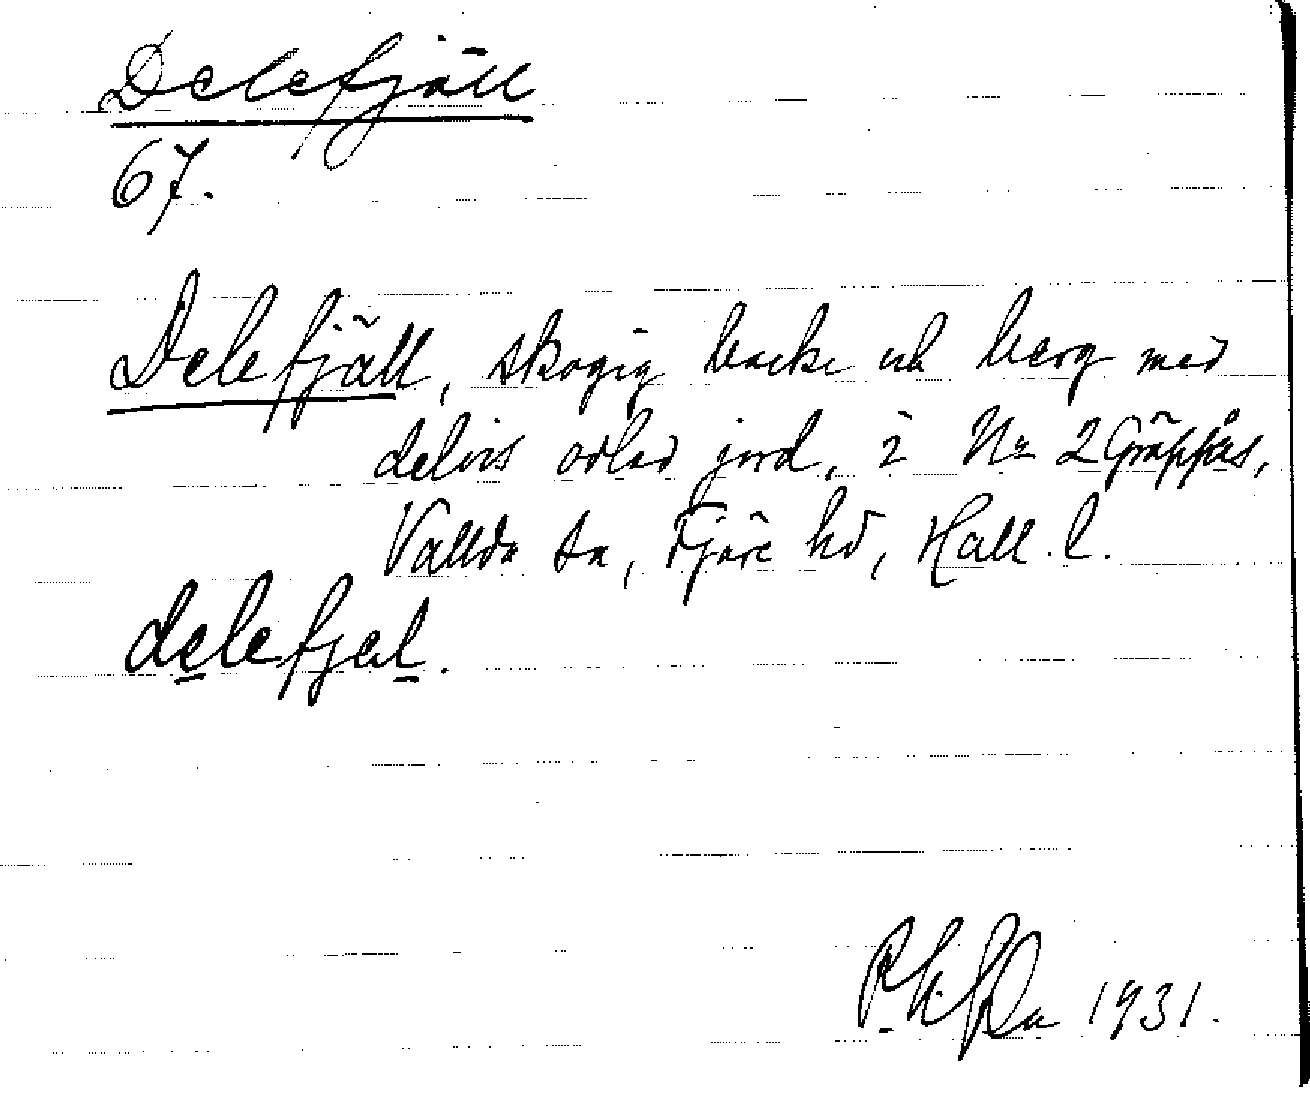 Delefjäll
67.
Delefjäll, skogig backe och berg med
delvis odlad jord, i Nr 2 Gräppås,
Vallda sn, Fjäre hd, Hall. l.
delefjæl.
1931.